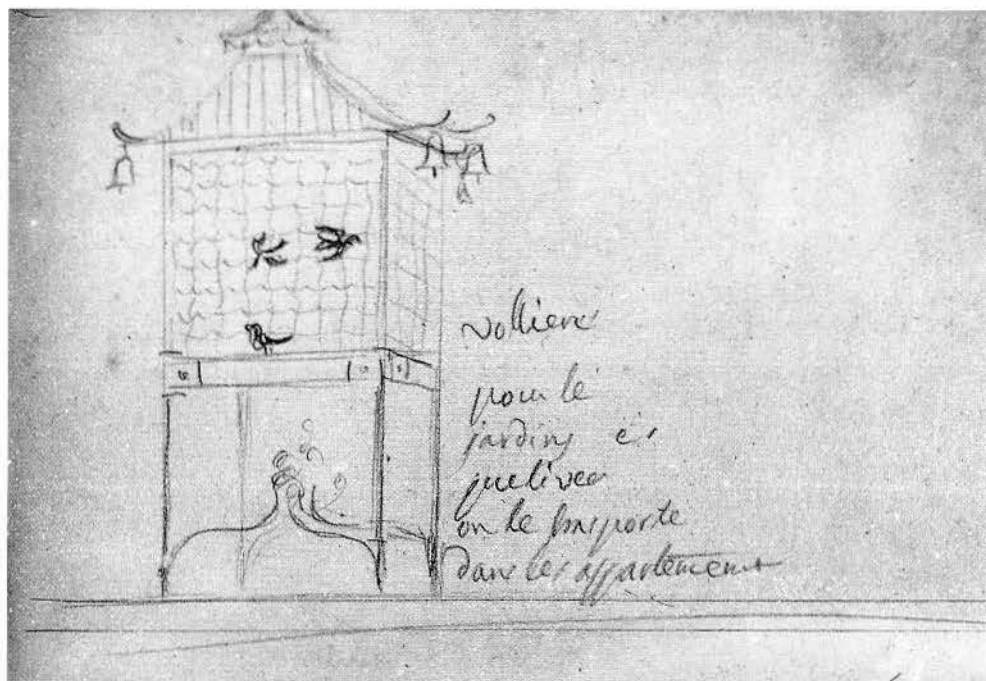 volliere
pour le
jardins et
que liver
on le transporte
dans les appartement